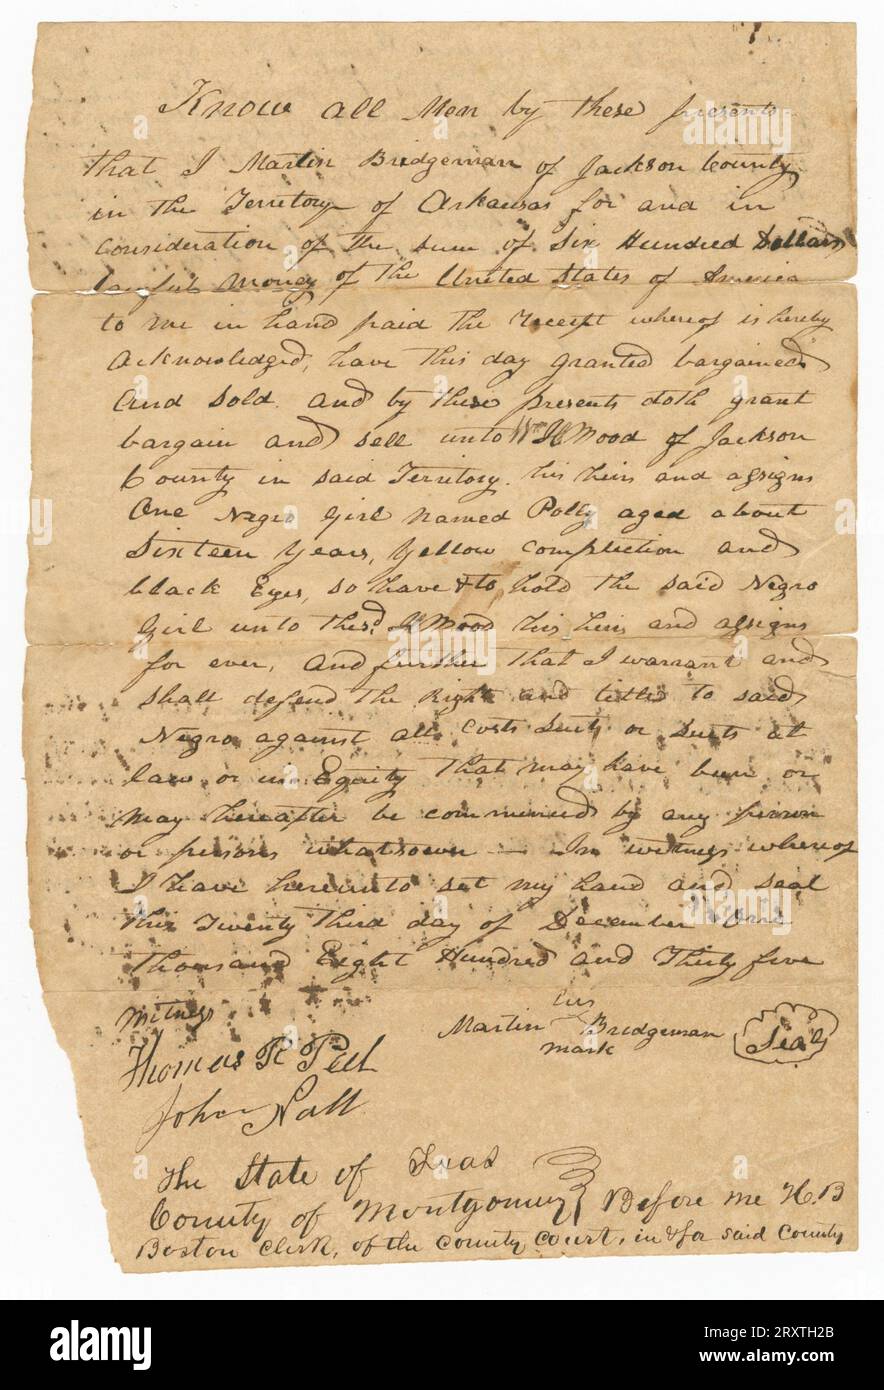 Know all Men by these presents
that I Martin Bridgeman of Jackson County
in the Territory of Arkansas for and in
consideration of the sum of Six Hundred Dollars
lawful money of the United States of America
to me in hand paid the receipt whereof is hereby
acknowledged, have this day granted bargained
and Sold and by these presents doth grant
bargain and sell unto Wm H Wood of Jackson
County in said Territory his heirs and assigns
One Negro Girl named Polly aged about
Sixteen Years, Yellow complection and
black Eyes, so have & to hold the said Negro
Girl unto the sd H Wood his heirs and assigns
for ever, and further that I warrant and
shall defend the Right and titles to said
Negro against all costs Suits or Suits at
law or in Equity that may have been or
may hereafter be commenced by any person
or persons whatsoever — In witness whereof
I have hereunto set my hand and seal
this Twenty third day of December One
thousand Eight Hundred and Thirty five
Witness
his
Martin Bridgeman Seal
mark
Thomas R
John
The State of Texas
County of Montgomery Before me H. B
Boston Clerk, of the County Court, in & for said County
alamy
alamy
Image ID: 2RXTH2B
www.alamy.com